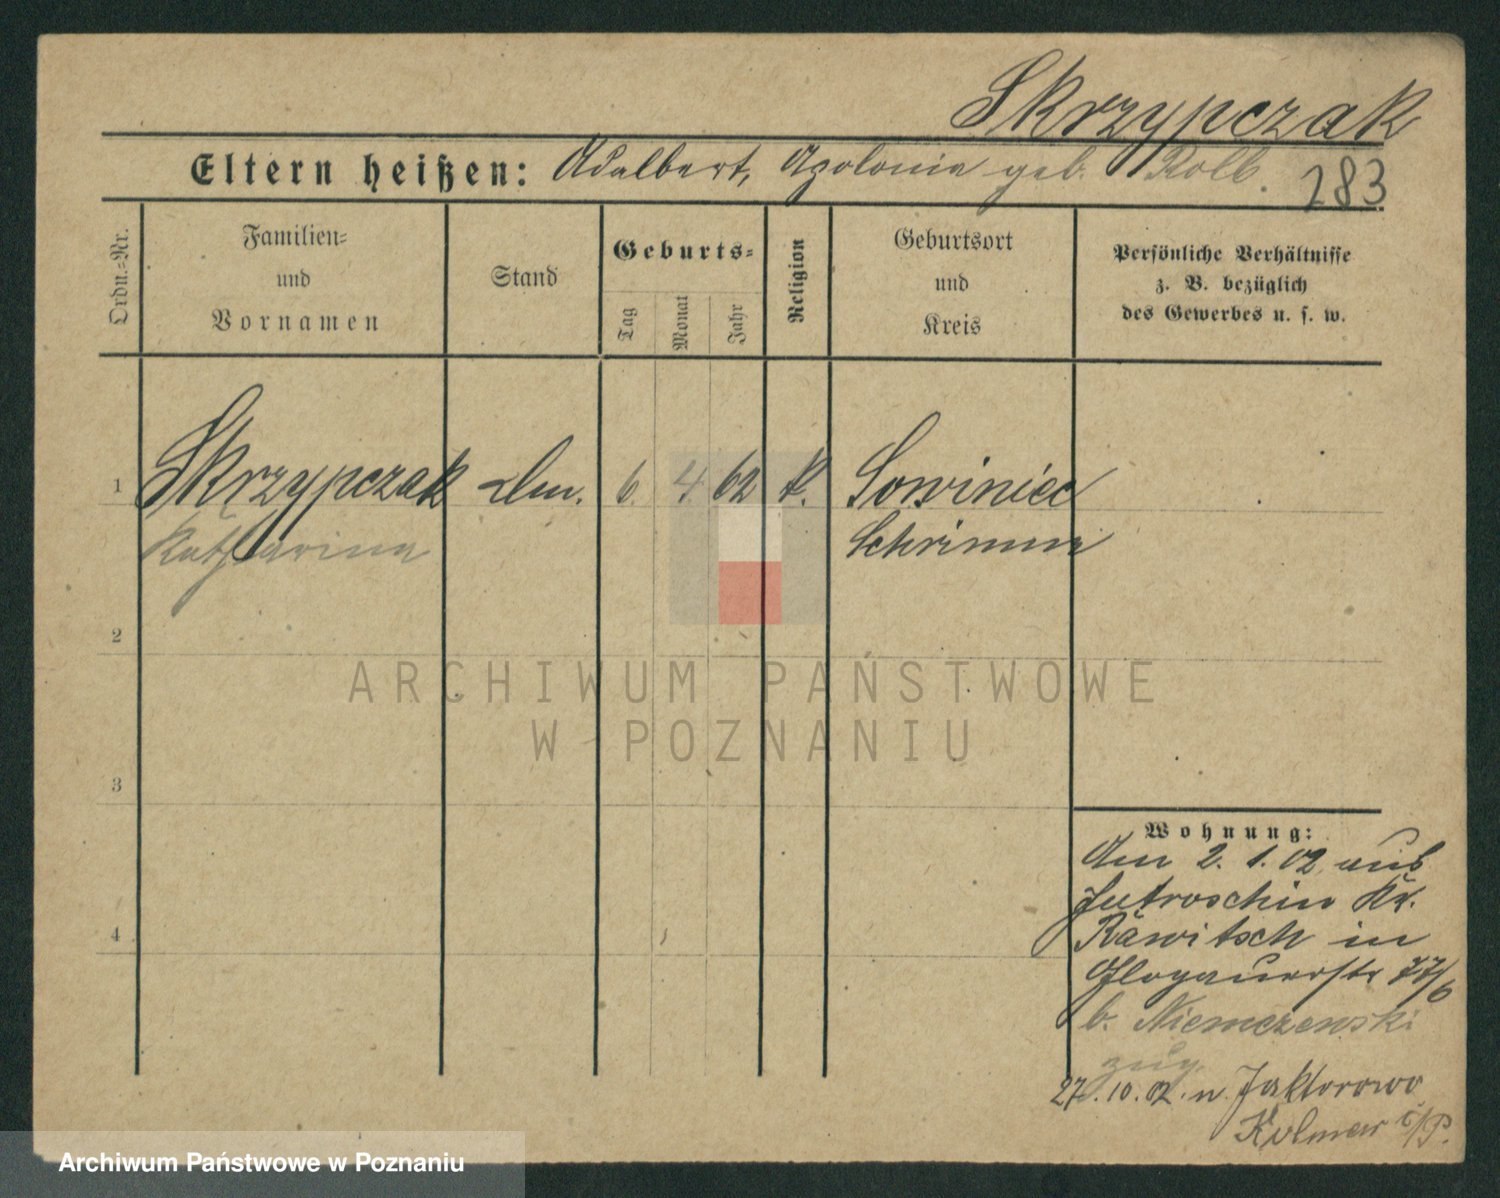 Skrzypczak
Eltern heißen: Adalbert, Apolonia geb. Kolb.
283
Ordn.=Nr.
Familien=
und
Vornamen
Stand
Geburts=
Tag
Monat
Jahr
Religion
Geburtsort
und
Kreis
Persönliche Verhältnisse
z. B. bezüglich
des Gewerbes u. s. w.
1 Skrzypczak 6. 4. 62 k. Sowiniec
Katharina Schrimm
2
ARCHIWUM PAŃSTWOWE
W POZNANIU
3
4
Wohnung:
Am 2. 1. 02 aus
Jutroschin Kr.
Rawitsch in
Glogauerstr 77/6
b. Niemczewski
zug.
27. 10. 02. n. Jaktorowo
Kolmar i/P.
Archiwum Państwowe w Poznaniu